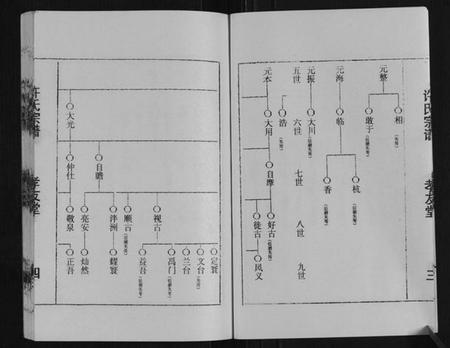 许氏宗谱
孝友堂
三
元整
相
敢于
元海
临
杭
香
元振
大川
浩
五世
六世
七世
八世
九世
元本
大用
自摩
好古
徒古
风义
许氏宗谱
孝友堂
四
大元
自瞻
仲仕
视古
顺古
泮洲
亮安
敬泉
定寰
文台
兰台
禹门
益吾
灿然
正吾